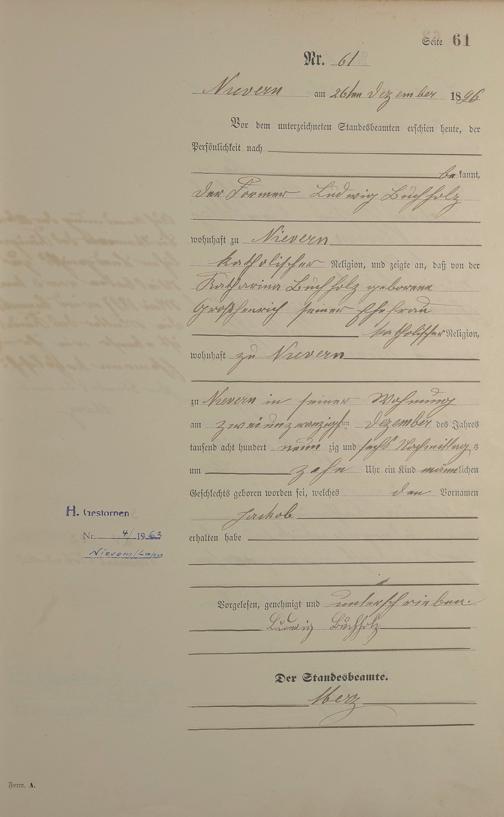 Seite 61
Nr. 61
Nievern am 26ten Dezember 1896
Vor dem unterzeichneten Standesbeamten erschien heute, der
Persönlichkeit nach
be kannt,
der Former Ludwig Buchholz
wohnhaft zu Nievern
katholischer Religion, und zeigte an, daß von der
Katharina Buchholz geborene
seiner Ehefrau
katholischer Religion,
wohnhaft zu Nievern
zu Nievern in seiner Wohnung
am zweiundzwanzigsten Dezember des Jahres
tausend acht hundert neun zig und sechs Nachmittags
um zehn Uhr ein Kind männlichen
Geschlechts geboren worden sei, welches den Vornamen
Jackob
erhalten habe
Vorgelesen, genehmigt und unterschrieben.
Ludwig Buchholz
Der Standesbeamte.
Merz
H. Gestorben
Nr. 4/1963
Nievern/Lahn
Form. A.